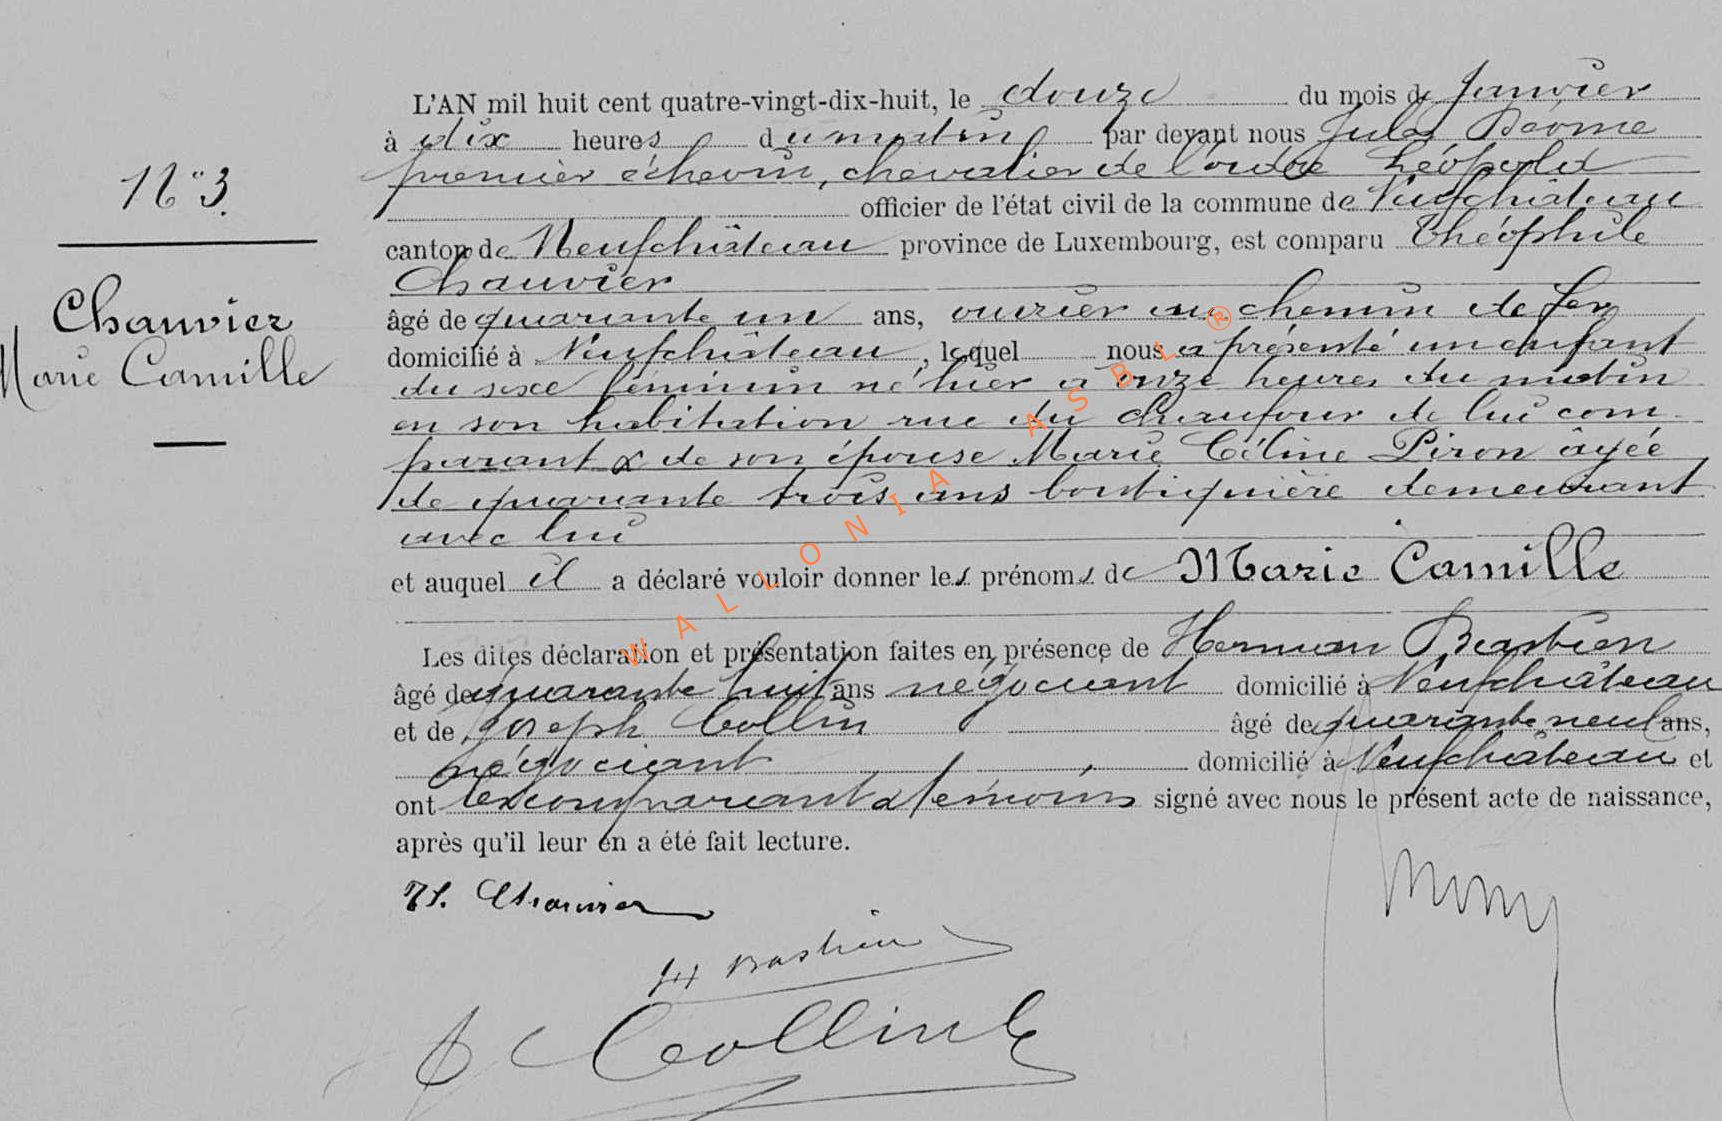 N° 3.
Chauvier
Marie Camille
L'AN mil huit cent quatre-vingt-dix-huit, le douze du mois de Janvier
à dix heures du matin par devant nous Jules
premier échevin, chevalier de l'ordre Léopold
officier de l'état civil de la commune de Neufchâteau
canton de Neufchâteau province de Luxembourg, est comparu Théophile
Chauvier
âgé de quarante un ans, ouvrier au chemin de fer
domicilié à Neufchâteau, lequel nous a présenté un enfant
du sexe féminin né hier à onze heures du matin
en son habitation rue du chaufour de lui com-
parant & de son épouse Marie Céline Piron âgée
de quarante trois ans boutiquière demeurant
avec lui
et auquel il a déclaré vouloir donner les prénoms de Marie Camille
Les dites déclaration et présentation faites en présence de Herman Bastien
âgé de quarante huit ans négociant domicilié à Neufchâteau
et de Joseph Collin âgé de quarante neuf ans,
négociant domicilié à Neufchâteau et
ont les comparant & témoins signé avec nous le présent acte de naissance,
après qu'il leur en a été fait lecture.
Th. Chauvier
H Bastien
J Collin
WALLONIA ASBL ®